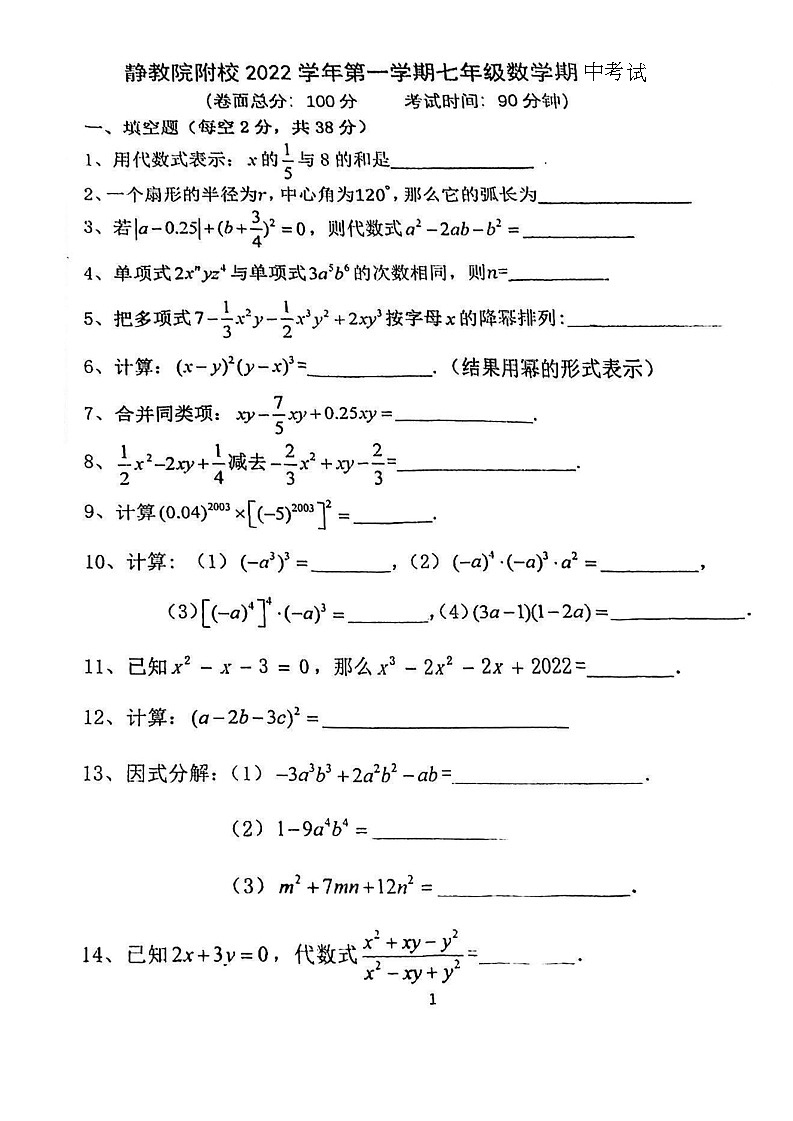 静教院附校 2022 学年第一学期七年级数学期中考试
(卷面总分：100 分 考试时间：90 分钟)
一、填空题（每空 2 分，共 38 分）
1、用代数式表示：x 的 1/5 与 8 的和是______________
2、一个扇形的半径为r，中心角为120°，那么它的弧长为______________
3、若|a-0.25|+(b+3/4)²=0，则代数式a²-2ab-b²=___________
4、单项式2xⁿyz⁴与单项式3a⁵b⁶的次数相同，则n=__________
5、把多项式7-1/3x²y-1/2x³y²+2xy³按字母x的降幂排列:______________
6、计算：(x-y)²(y-x)³=____________.（结果用幂的形式表示）
7、合并同类项：xy-7/5xy+0.25xy=_____________.
8、1/2x²-2xy+1/4减去-2/3x²+xy-2/3=_________________.
9、计算(0.04)²⁰⁰³×[(-5)²⁰⁰³]²=________.
10、计算:（1）(-a³)³=________,（2）(-a)⁴·(-a)³·a²=_________,
（3）[(-a)⁴]⁴·(-a)³=________,（4）(3a-1)(1-2a)=_____________.
11、已知x²-x-3=0，那么x³-2x²-2x+2022=________.
12、计算：(a-2b-3c)²=_______________________
13、因式分解：（1）-3a³b³+2a²b²-ab=__________________.
（2）1-9a⁴b⁴=_____________
（3）m²+7mn+12n²=__________________.
14、已知2x+3y=0，代数式(x²+xy-y²)/(x²-xy+y²)=_________.
1